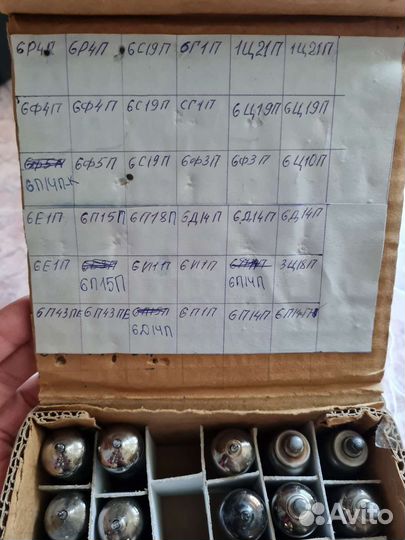 6Р4П 6Р4П 6С19П 6Г1П 1Ц21П 1Ц21П
6Ф4П 6Ф4П 6С19П СГ1П 6Ц19П 6Ц19П
6Ф5П 6Ф5П 6С19П 6Ф3П 6Ф3П 6Ц10П
6П14П-К
6Е1П 6П15П 6П18П 6Д14П 6Д14П 6Д14П
6Е1П 6И1П 6И1П 3Ц18П
6П15П 6П14П
6П43ПЕ 6П43ПЕ 6П1П 6П14П 6П14П
6Д14П
Avito